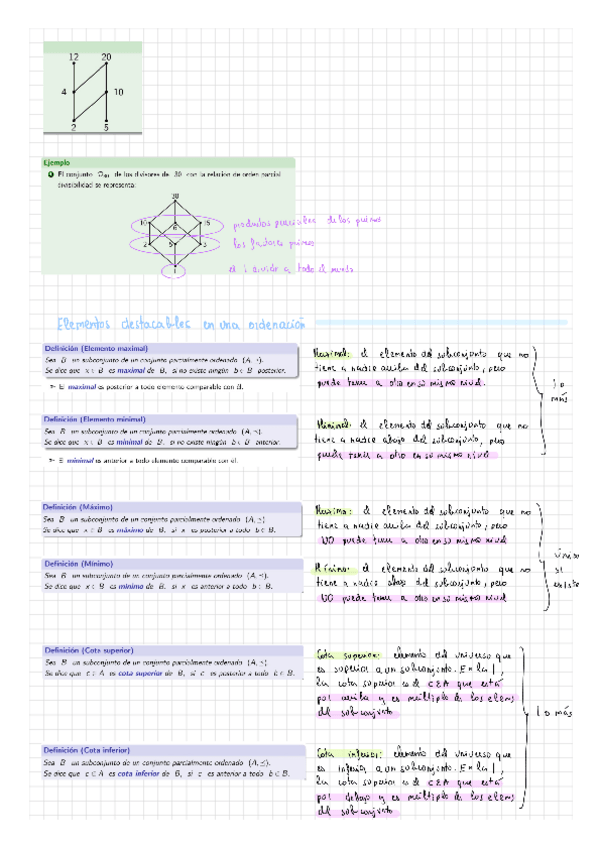 12 20
4 10
2 5
Ejemplo
El conjunto de los divisores de 30 con la relacion de orden parcial
divisibilidad se representa:
30
10 6 15
2 5 3
1
productos parciales de los primos
los factores primos
el 1 divide a todo el mundo
Elementos destacables en una ordenación
Definición (Elemento maximal)
Sea B un subconjunto de un conjunto parcialmente ordenado (A, ≤).
Se dice que x ∈ B es maximal de B, si no existe ningún b ∈ B posterior.
El maximal es posterior a todo elemento comparable con él.
Maximal: el elemento del subconjunto que no
tiene a nadie arriba del subconjunto, pero
puede tener a otro en su mismo nivel.
1 o
más
Definición (Elemento minimal)
Sea B un subconjunto de un conjunto parcialmente ordenado (A, ≤).
Se dice que x ∈ B es minimal de B, si no existe ningún b ∈ B anterior.
El minimal es anterior a todo elemento comparable con él.
Minimal: el elemento del subconjunto que no
tiene a nadie abajo del subconjunto, pero
puede tener a otro en su mismo nivel
Definición (Máximo)
Sea B un subconjunto de un conjunto parcialmente ordenado (A, ≤)
Se dice que x ∈ B es máximo de B, si x es posterior a todo b ∈ B.
Maximo: el elemento del subconjunto que no
tiene a nadie arriba del subconjunto, pero
NO puede tener a otro en su mismo nivel
único
si
existe
Definición (Mínimo)
Sea B un subconjunto de un conjunto parcialmente ordenado (A, ≤).
Se dice que x ∈ B es mínimo de B, si x es anterior a todo b ∈ B.
Mínimo: el elemento del subconjunto que no
tiene a nadie abajo del subconjunto, pero
NO puede tener a otro en su mismo nivel
Definición (Cota superior)
Sea B un subconjunto de un conjunto parcialmente ordenado (A, ≤)
Se dice que c ∈ A es cota superior de B, si c es posterior a todo b ∈ B.
Cota superior: elemento del universo que
es superior a un subconjunto. En la |,
la cota superior es el c∈A que está
por arriba y es múltiplo de los elems
del subconjunto
1 o más
Definición (Cota inferior)
Sea B un subconjunto de un conjunto parcialmente ordenado (A, ≤).
Se dice que c ∈ A es cota inferior de B, si c es anterior a todo b ∈ B.
Cota inferior: elemento del universo que
es inferior a un subconjunto. En la |,
la cota superior es el c∈A que está
por debajo y es múltiplo de los elems
del subconjunto